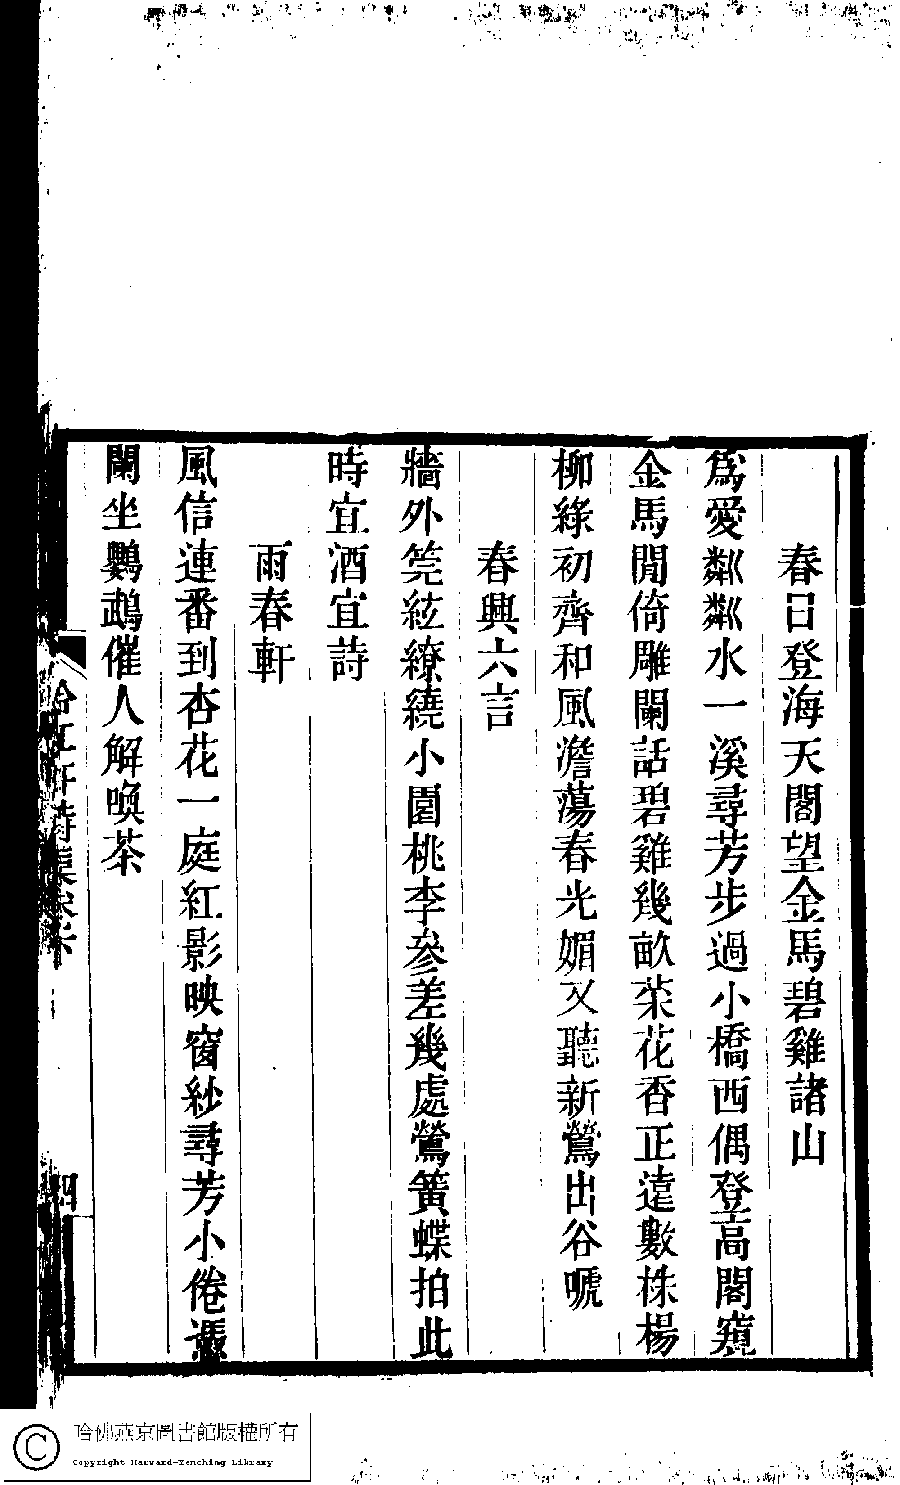 春日登海天閣望金馬碧雞諸山
爲愛粼粼水一溪尋芳步過小橋西偶登高閣窺
金馬閒倚雕闌話碧雞幾畝菜花香正遠數株楊
柳綠初齊和風澹蕩春光媚又聽新鶯出谷嗁
春興六言
牆外筦絃繚繞小園桃李參差幾處鶯簧蝶拍此
時宜酒宜詩
雨春軒
風信連番到杏花一庭紅影映窗紗尋芳小倦憑
闌坐鸚鵡催人解喚茶
詩集卷六
四
哈佛燕京圖書館版權所有
Copyright Harvard-Yenching Library